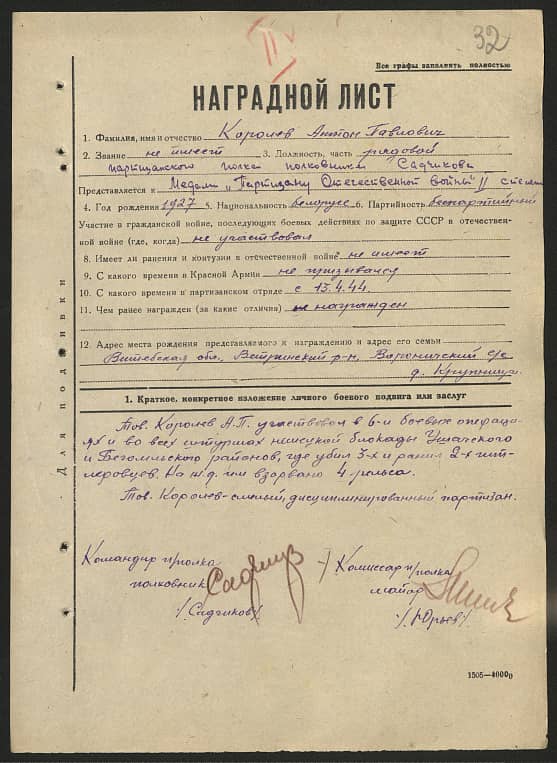 II
32
Все графы заполнять полностью
НАГРАДНОЙ ЛИСТ
1. Фамилия, имя и отчество Королев Антон Павлович
2. Звание не имеет 3. Должность, часть рядовой
партизанского полка полковника Садчикова
Представляется к Медали „Партизану Отечественной войны" II степени
4. Год рождения 1927 5. Национальность белорус 6. Партийность беспартийный
Участие в гражданской войне, последующих боевых действиях по защите СССР и отечествен-
ной войне (где, когда) не участвовал
8. Имеет ли ранения и контузии в отечественной войне не имеет
9. С какого времени в Красной Армии не призывался
10. С какого времени в партизанском отряде с 15.4.44.
11. Чем ранее награжден (за какие отличия) не награжден
12. Адрес места рождения представляемого к награждению и адрес его семьи
Витебская обл., Ветринский р-н, Вороничский с/с
д. Крупница.
Для подшивки
1. Краткое, конкретное изложение личного боевого подвига или заслуг
Тов. Королев А.П. участвовал в 6-и боевых операци-
ях и во всех штурмах немецкой блокады Ушачского
и Бегомльского районов, где убил 3-х и ранил 2-х гит-
леровцев. На ж.д. им взорвано 4 рельса.
Тов. Королев-смелый, дисциплинированный партизан.
Командир п/полка
полковник
/Садчиков/
Комиссар п/полка
майор
/Юрьев/.
1505—4000